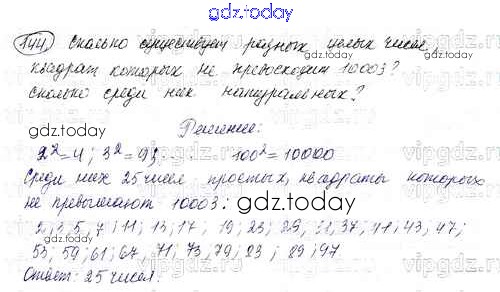 gdz.today
144. Сколько существует разных целых чисел,
gdz.today
квадрат которых не превосходит 10003?
Сколько среди них натуральных?
gdz.today
Решение:
2²=4; 3²=9; 100²=10000
Среди них 25 чисел простых, квадраты которых
не превышают 10003:
gdz.today
2; 3; 5; 7; 11; 13; 17; 19; 23; 29; 31; 37; 41; 43; 47;
53; 59; 61; 67; 71; 73; 79; 83; 89; 97
gdz.today
Ответ: 25 чисел.